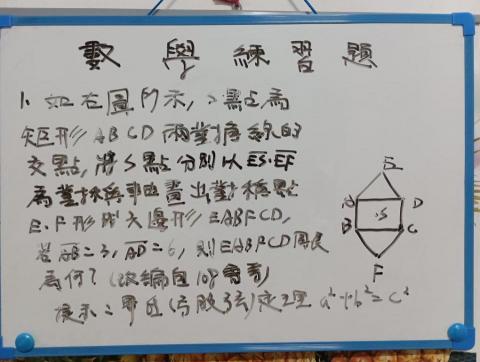 數學練習題
1、如右圖所示，S點為
矩形ABCD兩對角線的
交點，將S點分別以ES.EF
為對稱軸畫出對稱點
E.F形成六邊形EABFCD，
若AB=3，AD=6，則EABFCD周長
為何？(改編自108會考)
提示：畢氏(勾股弦)定理 a²+b²=c²
E
A
D
.S
B
C
F